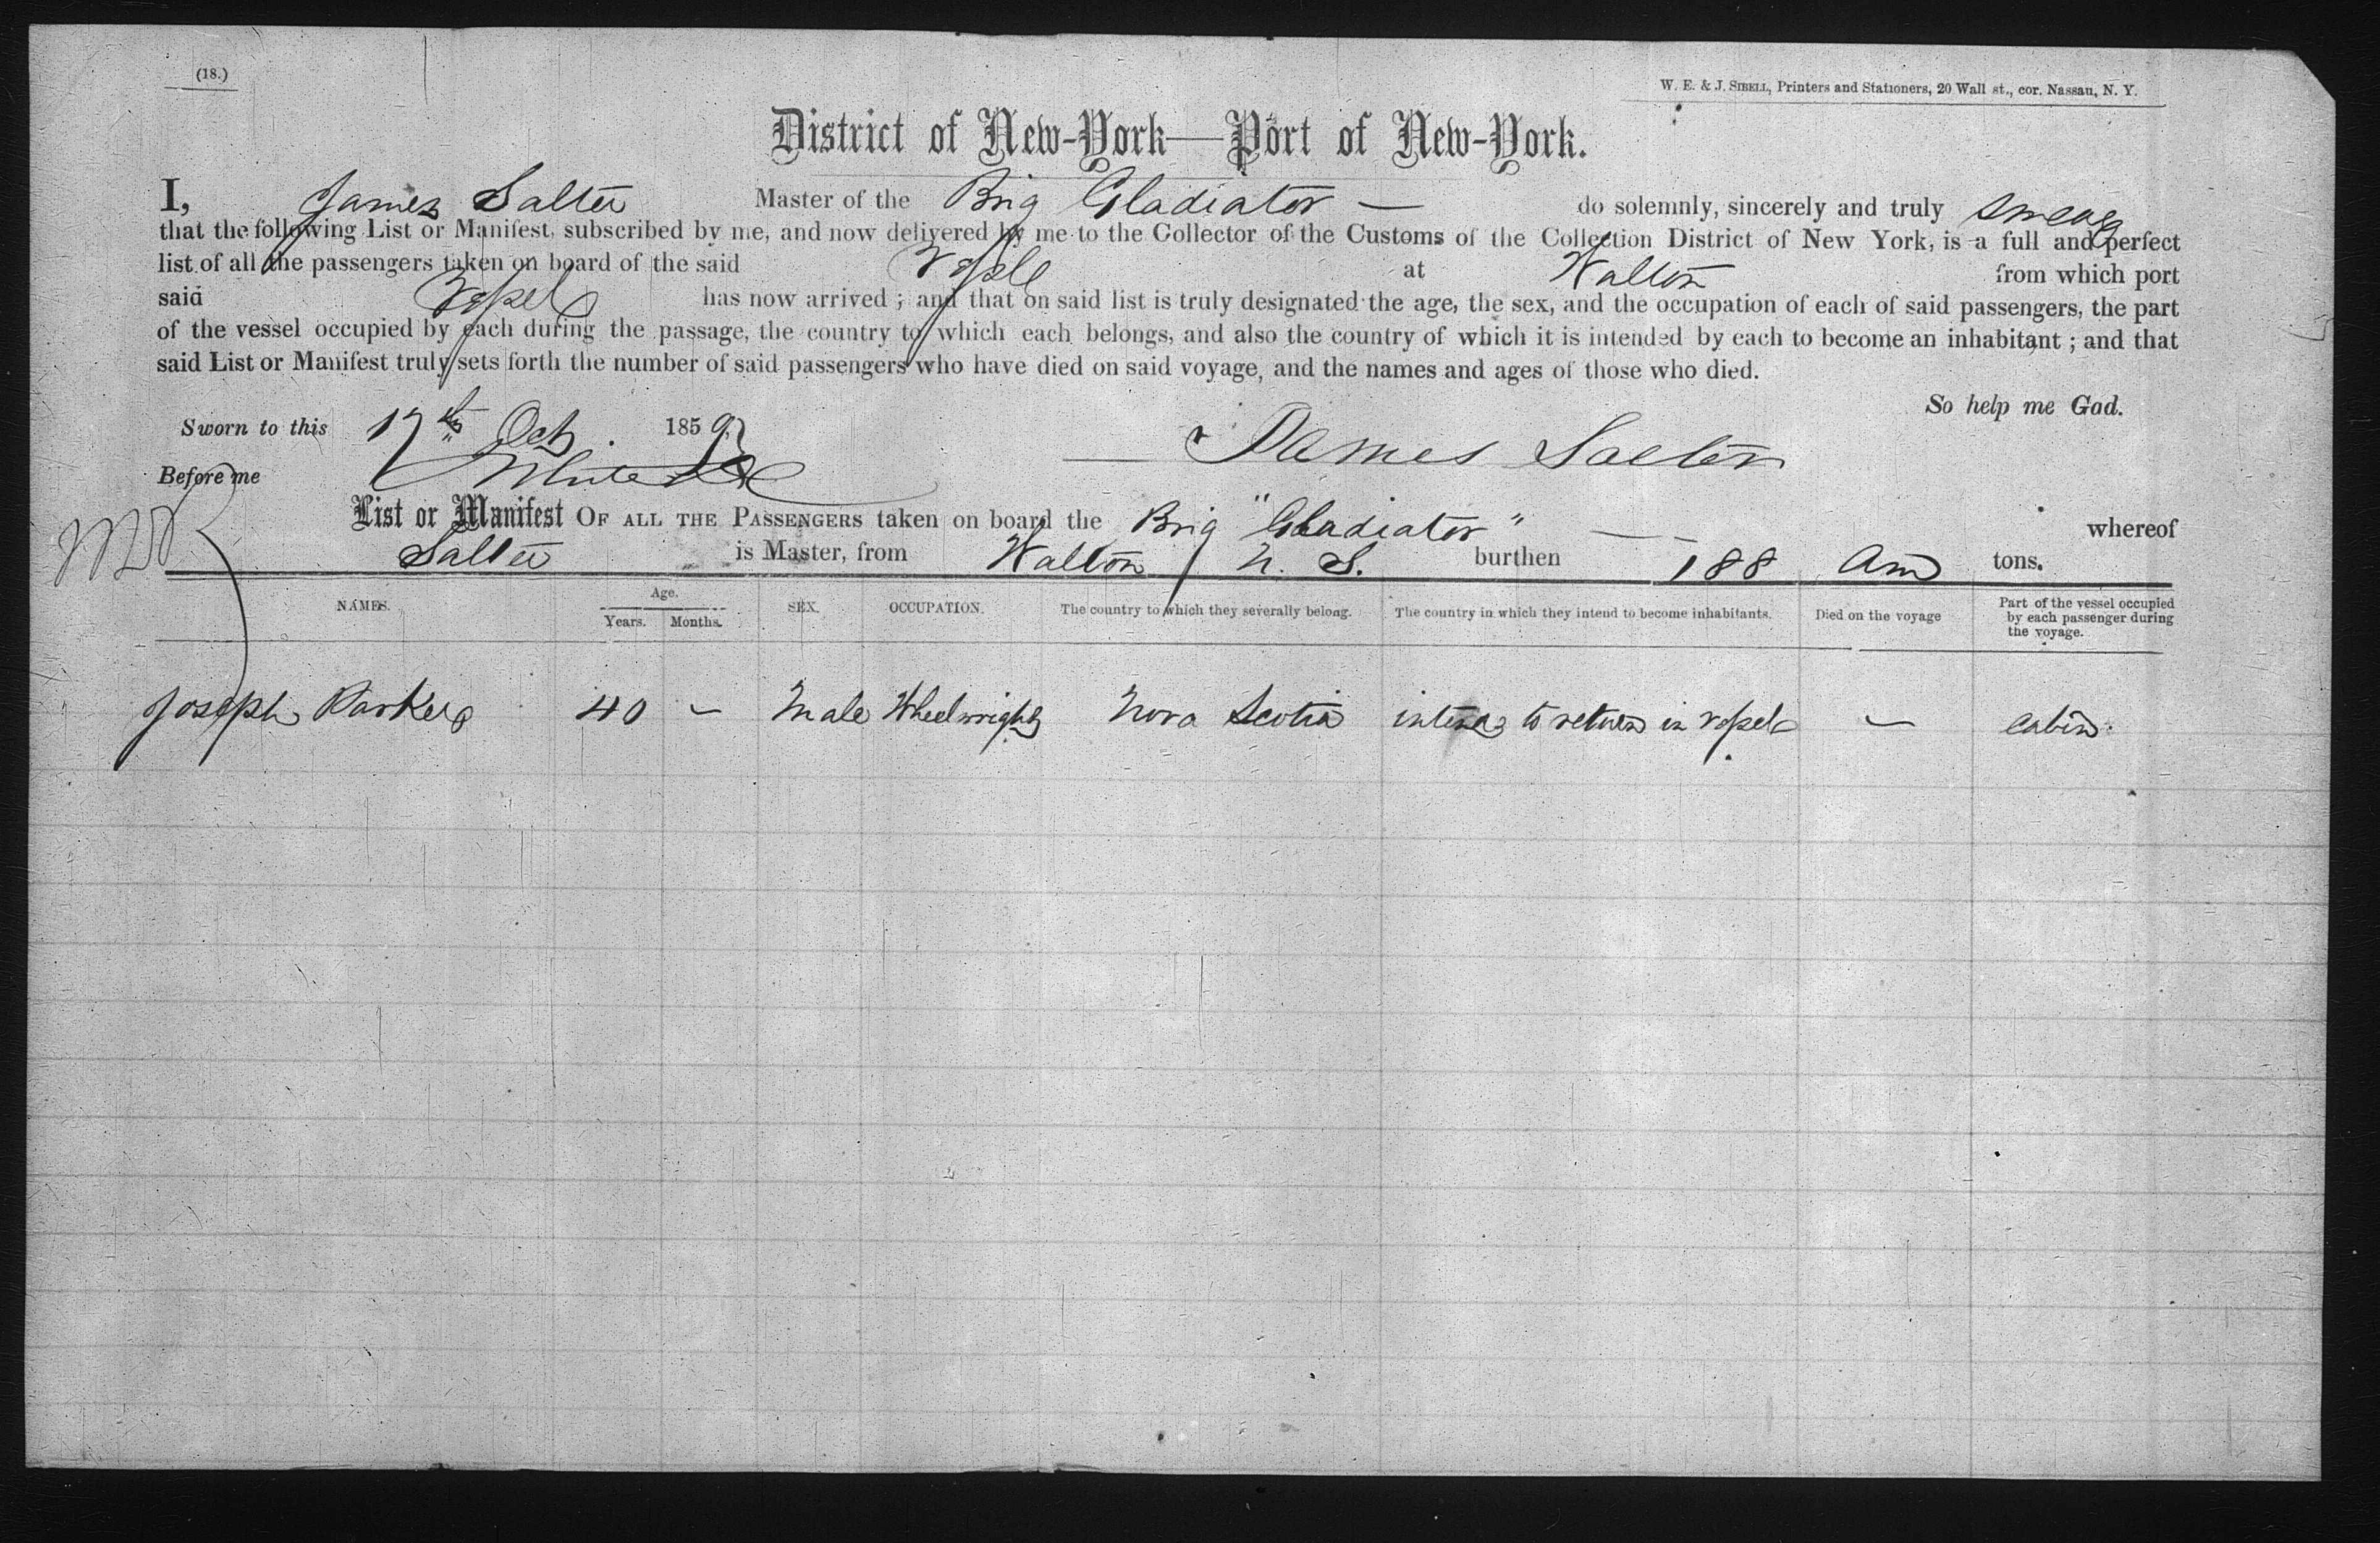 (18.)
W. E. & J. SIBELL, Printers and Stationers, 20 Wall st., cor. Nassau, N. Y.
District of New-York—Port of New-York.
I, James Salter Master of the Brig Gladiator — do solemnly, sincerely and truly swear
that the following List or Manifest, subscribed by me, and now delivered by me to the Collector of the Customs of the Collection District of New York, is a full and perfect
list of all the passengers taken on board of the said Vessel at Walton from which port
said Vessel has now arrived ; and that on said list is truly designated the age, the sex, and the occupation of each of said passengers, the part
of the vessel occupied by each during the passage, the country to which each belongs, and also the country of which it is intended by each to become an inhabitant ; and that
said List or Manifest truly sets forth the number of said passengers who have died on said voyage, and the names and ages of those who died.
So help me God.
Sworn to this 17th Oct. 1859
James Salter
Before me
List or Manifest OF ALL THE PASSENGERS taken on board the Brig "Gladiator" — whereof
Salter is Master, from Walton N. S. burthen 188 tons.
NAMES. Age. Years. Months. SEX. OCCUPATION. The country to which they severally belong. The country in which they intend to become inhabitants. Died on the voyage Part of the vessel occupied by each passenger during the voyage.
Joseph Parker 40 – Male Wheelwright Nova Scotia intends to return in vessel — cabin.